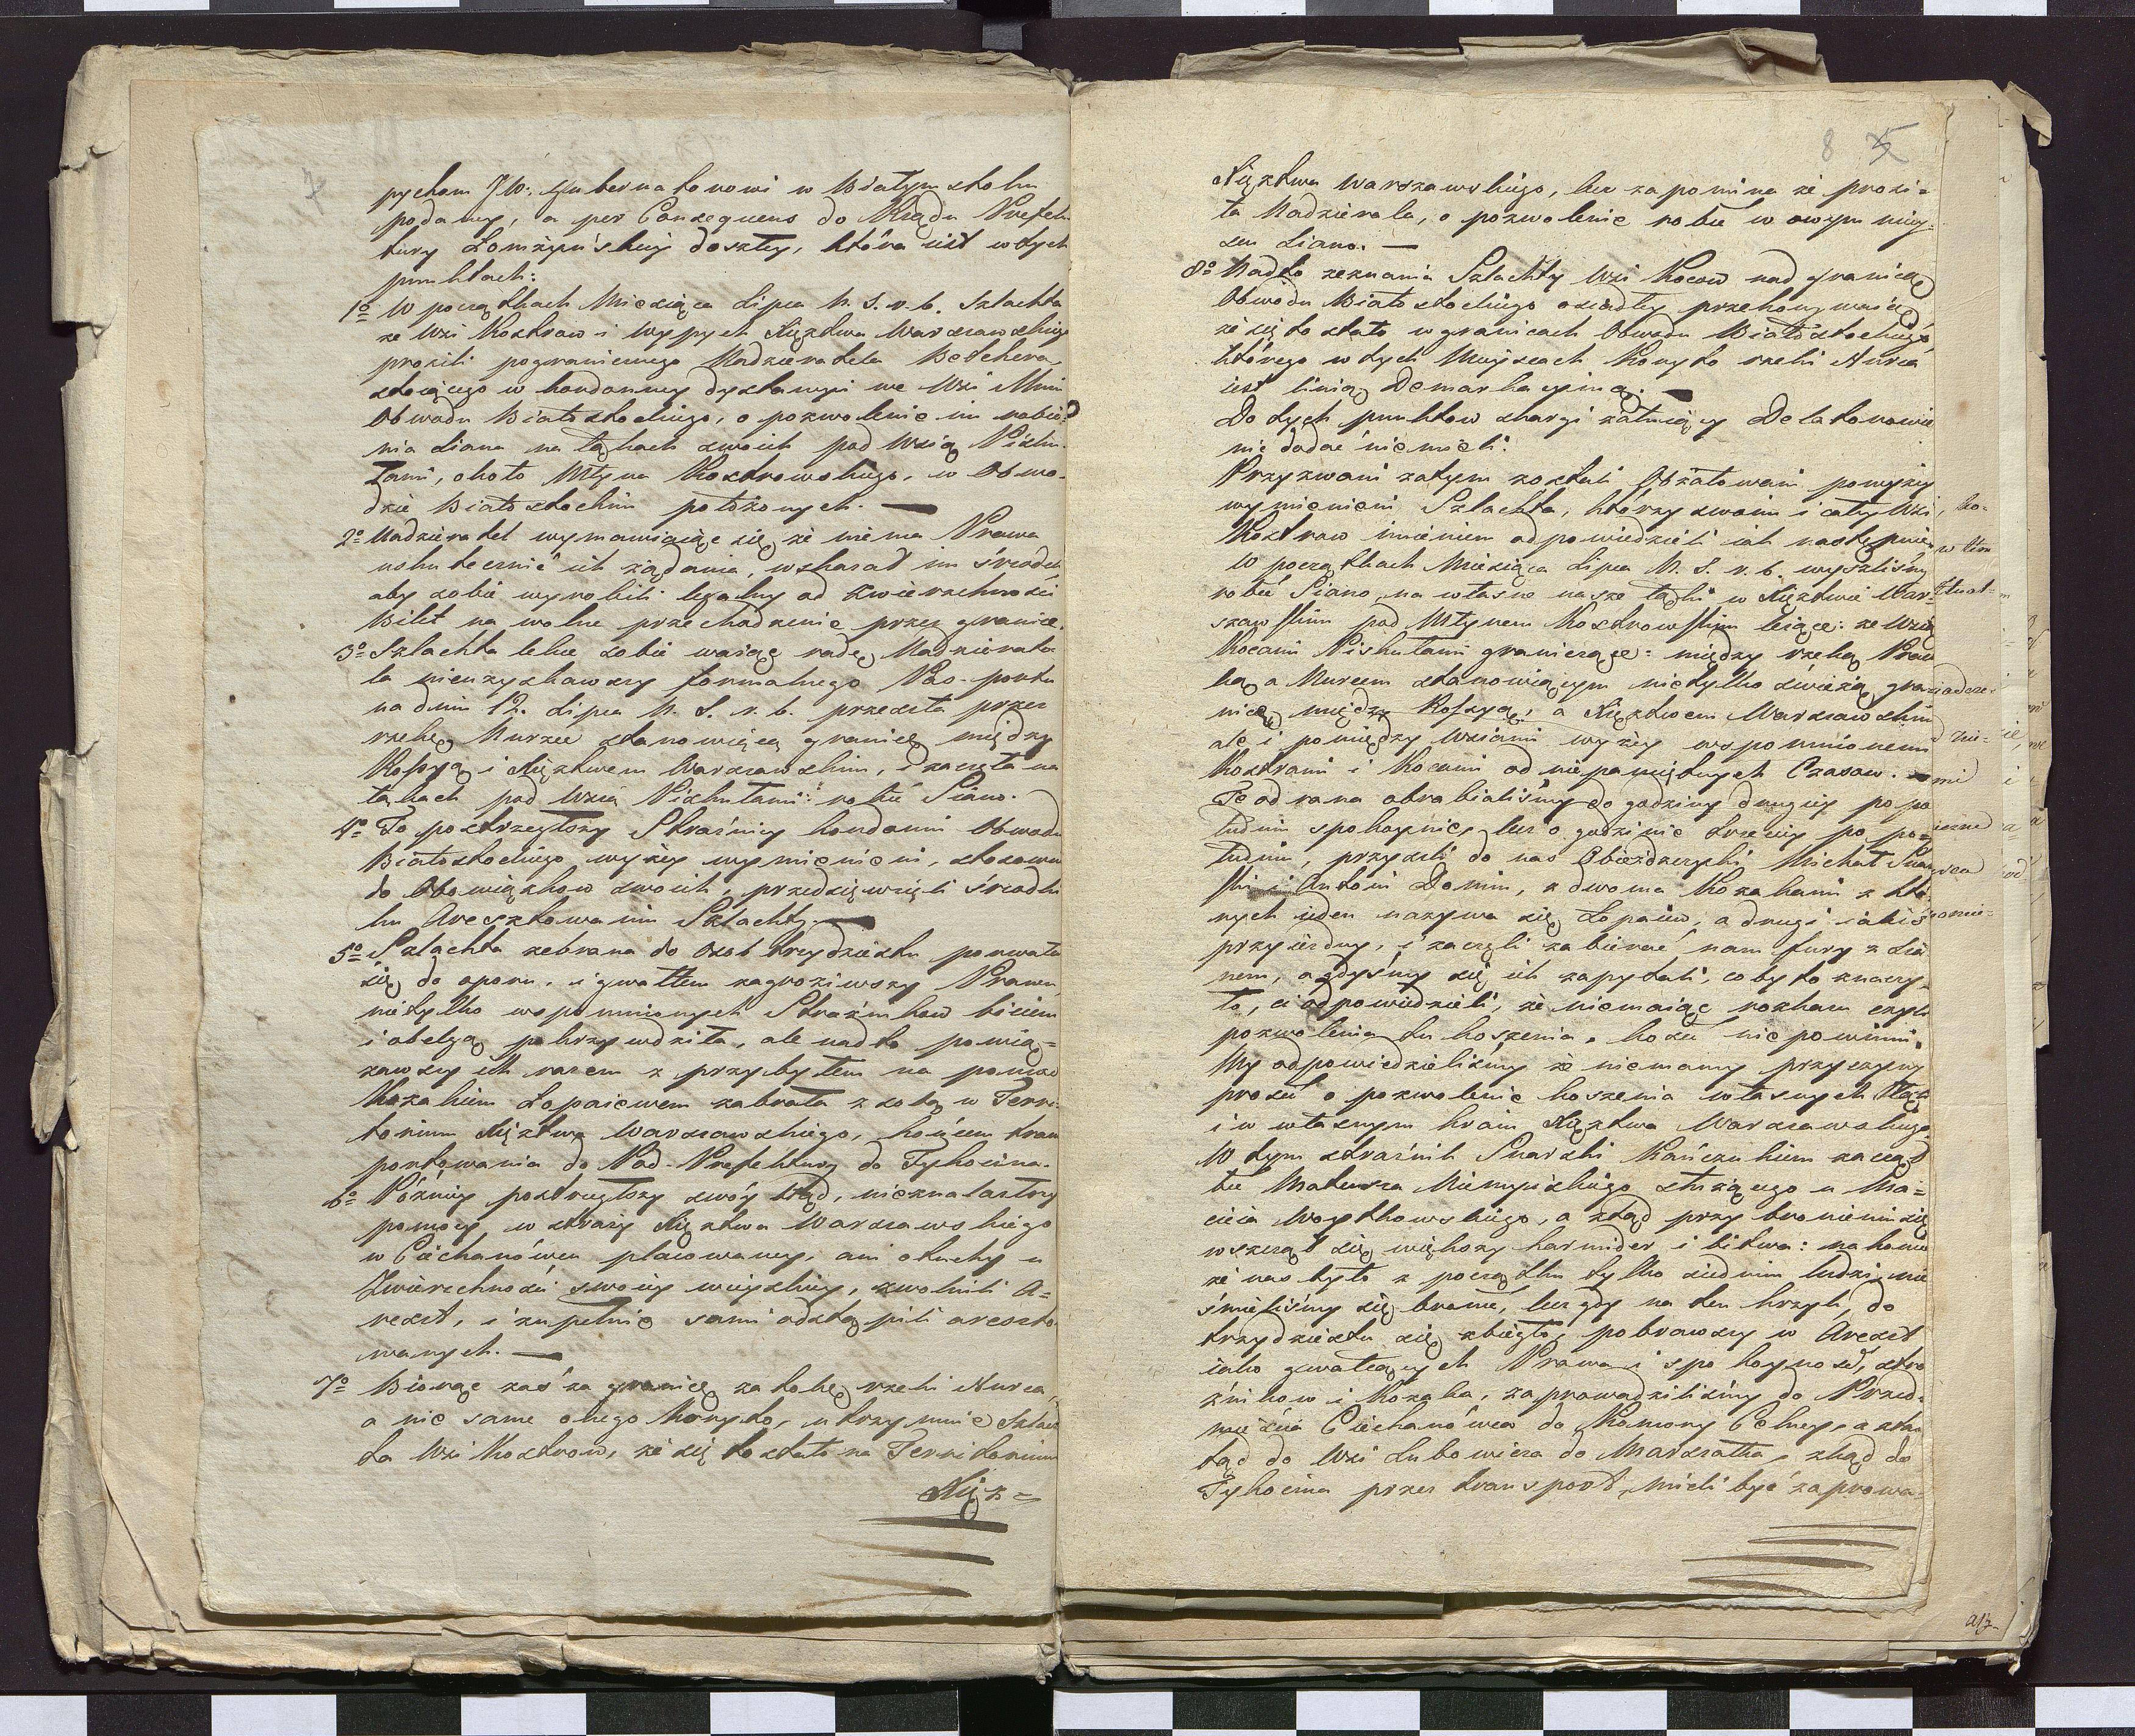 7
pychom JW: Gubernatorowi w Białymstoku
podaney, a per Consequens do Rządu Prefek
tury Łomżyńskiey doszłey, która iest w tych
punktach:
1o W początkach Miesiąca Lipca N. S. r. b. Szlachta
ze Wsi Kostraw i Wypych Xięztwa Warszawskiego
prosili pogranicznego Nadzieratela Betchera,
stoiącego w kordonney dystancyi we Wsi
Obwodu Białostockiego, o pozwolenie im robie
nia siana na łąkach swoich pod Wsią Piszku
Tami, około Młyna Kostrowskiego, w Obwo-
dzie Białostockim położonych. —
2o Nadzieratel wymawiaiąc się że niema Prawa
uskutecznić ich żądania, wskazał im środek
aby sobie wyrobili legalny od Zwierzchności
Bilet na wolne przechodzenie przez granicę.
3o Szlachta lekce sobie ważąc radę Nadzierate
la nieuzyskawszy formalnego Pas-portu
na dniu 12. Lipca N. S. r. b. przeszła przez
rzekę Nurzec stanowiącą granicę między
Rossyą i Xięztwem Warszawskim, i zaczęła na
łąkach pod Wsią Piszkutami: robić Siano.
4o To postrzegłszy Strażnicy kordonni Obwodu
Białostockiego wyżey wymienieni, stosownie
do Obowiązkow swoich, przedsięwzięli środki
ku Aresztowaniu Szlachty. —
5o Szlachta zebrana do Osob trzydziestu porwała
się do oporu, i gwałtem zagroziwszy Prawu,
nietylko wspomnionych Strażnikow biciem
i obelgą pokrzywdziła, ale nadto powią=
zawszy ich razem z przybyłem na pomoc
Kozakiem Łopaiewem zabrała z sobą w Terri
torium Xięztwa Warszawskiego, końcem trans
portowania do Pod-Prefektury do Tykocina.
6o Późniey postrzegłszy swóy błąd, nieznalazłszy
pomocy w straży Xięztwa Warszawskiego
w Ciechanówcu placowaney, ani otuchy u
Zwierzchności swoiey mieyskiey, zwolnili A=
reszt, i zupełnie sami odstąpili areszto
wanych. —
7o Biorąc zaś za granicę zatokę rzeki Nurca,
a nie same onego Koryto, utrzymuie Szlach
ta Wsi Kostrow, że się to stało na Territorium
Xięz=
8
Xięztwa Warszawskiego, lecz zapomina że prosi=
ła Nadzierala, o pozwolenie robić w owym miey-
scu siano. —
8o Nadto zeznania Szlachty Wsi Kocow nad granicą
Obwodu Białostockiego osiadłey przekonywaią
że się to stało w granicach Obwodu Białostockiego
którego w tych Mieyscach Koryto rzeki Nurca
iest linią Demarkacyiną. —
Do tych punktow skargi żalniący Delatorowie
nic dodać niemieli.
Przyzwani zatym zostali Obżałowani powyżey
wymienieni Szlachta, którzy swoim i całey Wsi
Kostraw imieniem odpowiedzieli iak następnie
W początkach Miesiąca Lipca N. S. r. b. wyszliśmy
robić Siano na własne nasze łąki w Xięztwie War-
szawskim pod Młynem Kostrowskim leżące: ze Wsią
Kocami Piszkutami graniczące: między rzeką
a Nurcem stanowiącym nietylko świeżą gra
nicę między Rossyą, a Xięztwem Warszawskim
ale i pomiędzy wsiami wyżey wspomnionemi
Kostrami i Kocami od niepamiętnych Czasow. —
To od rana obrabialiśmy do godziny drugiey po po
łudniu spokoynie, lecz o godzinie trzeciey po po=
łudniu, przyszli do nas Obieżdzczyki Michał
i Antoni Domin, z dwoma Kozakami z któ
rych ieden nazywa się Łopaiew, a drugi iakiś
przyiezdny, i zaczęli zabierać nam fury z sia
nem, a gdyśmy się ich zapytali, coby to znaczy-
ło, ci odpowiedzieli, że niemaiąc rozkazu czyli
pozwolenia tu koszenia, kosić nie powinni.
My odpowiedzieliśmy że niemamy przyczyny
prosić o pozwolenie koszenia własnych Łąk
i w własnym kraiu Xięztwa Warszawskiego.
W tym strażnik Kańczukiem zaczął
bić Mateusza stużącego u Ma=
cieia Woytkowskiego, a ztąd przy bronieniu się
wszczął się większy harmider i bitwa:
że nas było z początku tylko siedmiu ludzi, nie
śmieliśmy się bronić, lecz gdy na ten krzyk, do
trzydziestu się zbiegło, pobrawszy w Areszt
iako gwałcących Prawa i spokoyność, stra
żnikow i Kozaka, zaprowadziliśmy do Przed-
mieścia Ciechanówca do Komory Celney, a ztam
tąd do Wsi Lubowicza do Marszałka, zkąd do
Tykocina przez transport, mieli być zaprowa-